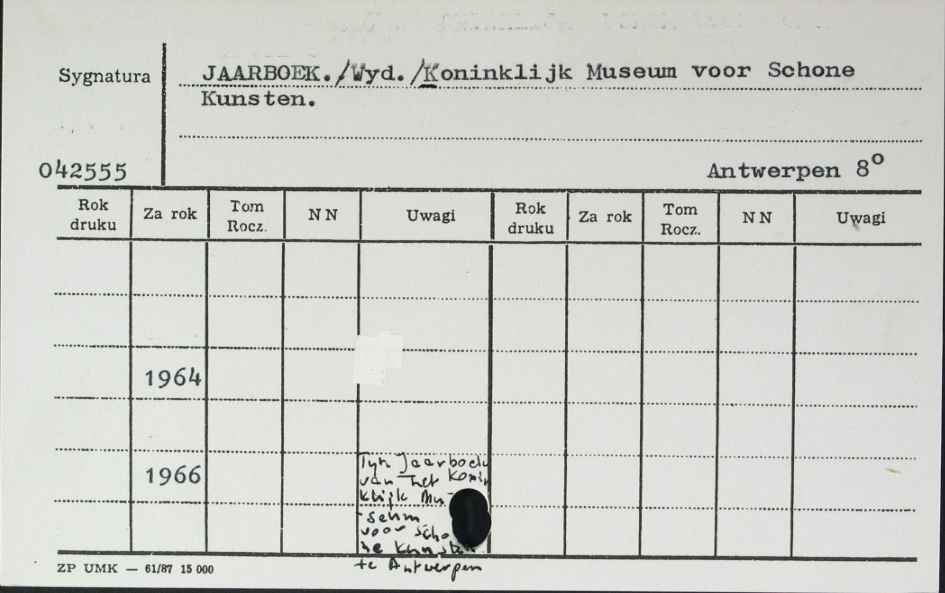 Sygnatura
JAARBOEK./Wyd./Koninklijk Museum voor Schone
Kunsten.
042555
Antwerpen 8º
Rok druku Za rok Tom Rocz. NN Uwagi Rok druku Za rok Tom Rocz. NN Uwagi
1964
1966
Tyt. Jaarboek
van het Konin
klijk Mu-
-seum
voor Scho
ne Kunsten
te Antwerpen
ZP UMK — 61/87 15 000